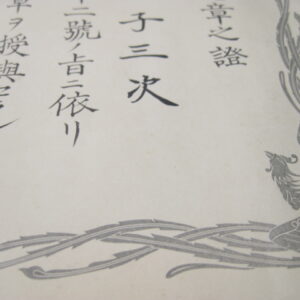 章之證
子三次
十二號ノ旨ニ依リ
章ヲ授與セラル